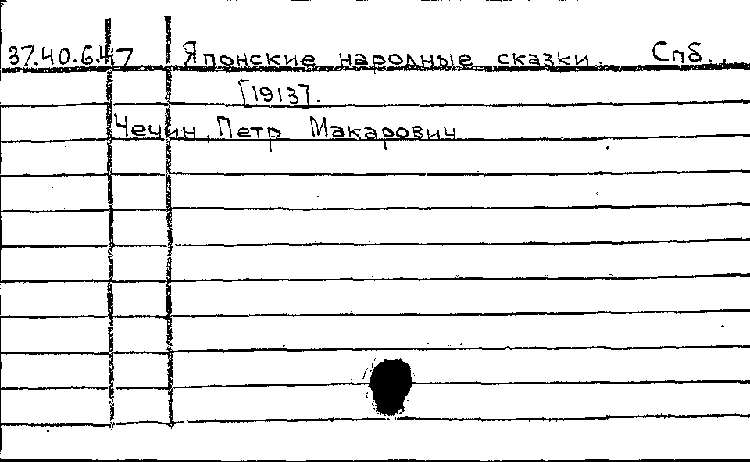 37.40.6.47 Японские народные сказки. Спб.,
[1913].
Чечин, Петр Макарович